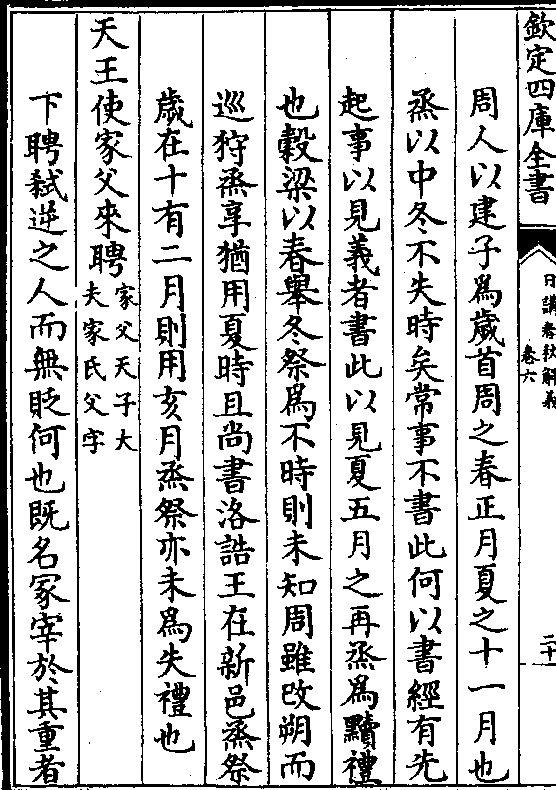 欽定四庫全書
日講春秋解義
卷六
二十
周人以建子為歲首周之春正月夏之十一月也
烝以中冬不失時矣常事不書此何以書經有先
起事以見義者書此以見夏五月之再烝為黷禮
也穀梁以春舉冬祭為不時則未知周雖改朔而
巡狩烝享猶用夏時且尚書洛誥王在新邑烝祭
歲在十有二月則用亥月烝祭亦未為失禮也
天王使家父來聘家父天子大
夫家氏父字
下聘弒逆之人而無貶何也既名冢宰於其重者